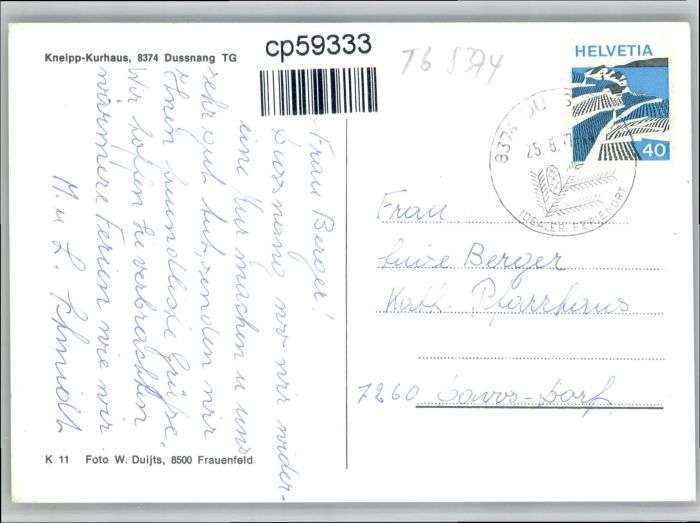 Kneipp-Kurhaus, 8374 Dussnang TG
cp59333
TG 8374
HELVETIA
40
8374 DUSS
25.8.7
IDEALER FERIENORT
Frau Berger!
Dussnang wo wir wider-
eine Kur machen u uns
sehr gut tut, senden wir
Ihnen freundliche Grüsse,
Wir hoffen Sie verbrachten
wärmere Ferien wie wir
M. u L. Schmidt
Frau
Luise Berger
Kath. Pfarrhaus
7260 Davos-Dorf
K 11 Foto W. Duijts, 8500 Frauenfeld